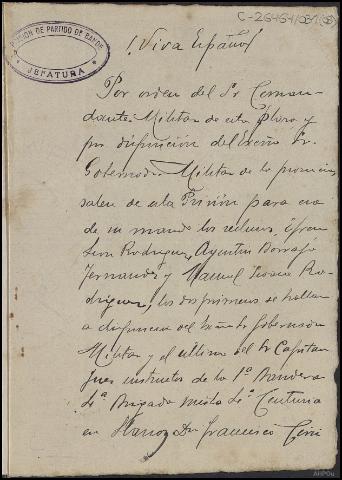 C-26454/031(03)
PRISIÓN DE PARTIDO DE BANDE
JEFATURA
¡Viva España!
Por orden del Sr Coman-
dante Militar de esta Plaza y
por disposición del Excmo Sr.
Gobernador Militar de la provincia,
salen de esta Prisión para
de su mando los reclusos,
Rodriguez, Agustin Borrajo
Fernandez y Manuel Seoane Ro-
driguez, los dos primeros se hallan
a disposición del Gobernador
Militar y el ultimo del Sr Capitan
Juez instructor de la 1ª Bandera
Centuria
en Don Francisco
AHPOu